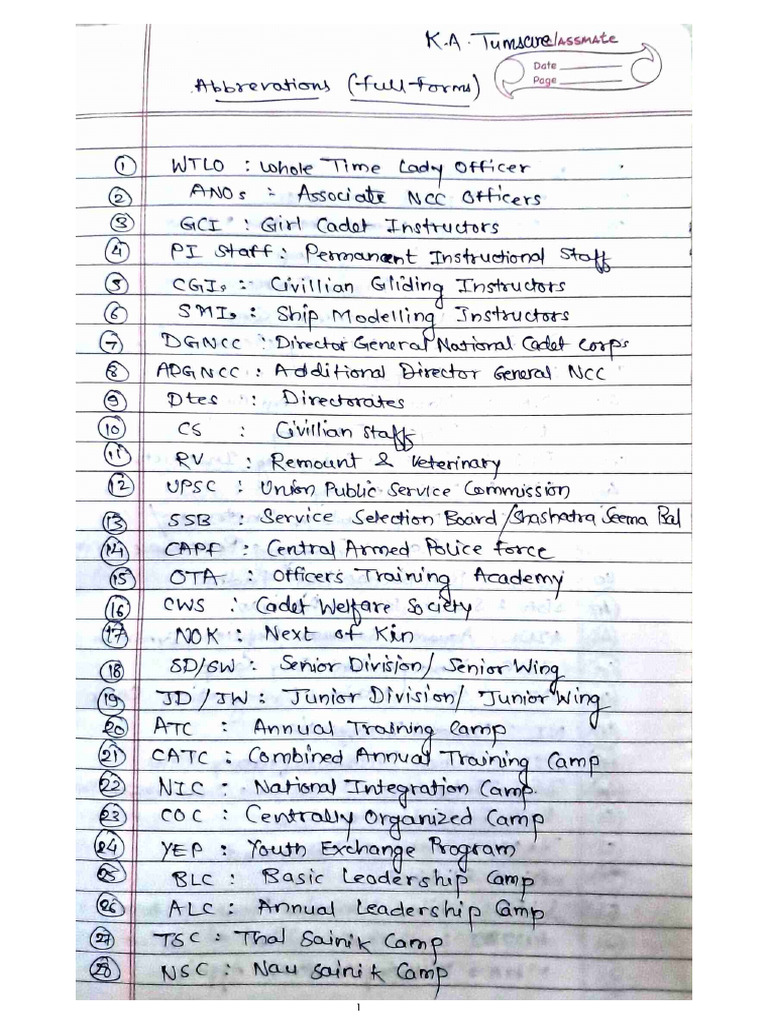 K.A. Tumsare
classmate
Date
Page
Abbrevations (full forms)
1 WTLO : Whole Time Lady Officer
2 ANOs : Associate NCC Officers
3 GCI : Girl Cadet Instructors
4 PI Staff : Permanent Instructional Staff
5 CGIs : Civillian Gliding Instructors
6 SMIs : Ship Modelling Instructors
7 DGNCC : Director General National Cadet Corps
8 ADGNCC : Additional Director General NCC
9 Dtes : Directorates
10 CS : Civillian Staffs
11 RV : Remount & Veterinary
12 UPSC : Union Public Service Commission
13 SSB : Service Selection Board / Shashatra Seema Bal
14 CAPF : Central Armed Police Force
15 OTA : Officers Training Academy
16 CWS : Cadet Welfare Society
17 NOK : Next of Kin
18 SD/SW : Senior Division / Senior Wing
19 JD / JW : Junior Division / Junior Wing
20 ATC : Annual Training Camp
21 CATC : Combined Annual Training Camp
22 NIC : National Integration Camp.
23 COC : Centrally Organized Camp
24 YEP : Youth Exchange Program
25 BLC : Basic Leadership Camp
26 ALC : Annual Leadership Camp
27 TSC : Thal Sainik Camp
28 NSC : Nau Sainik Camp
1